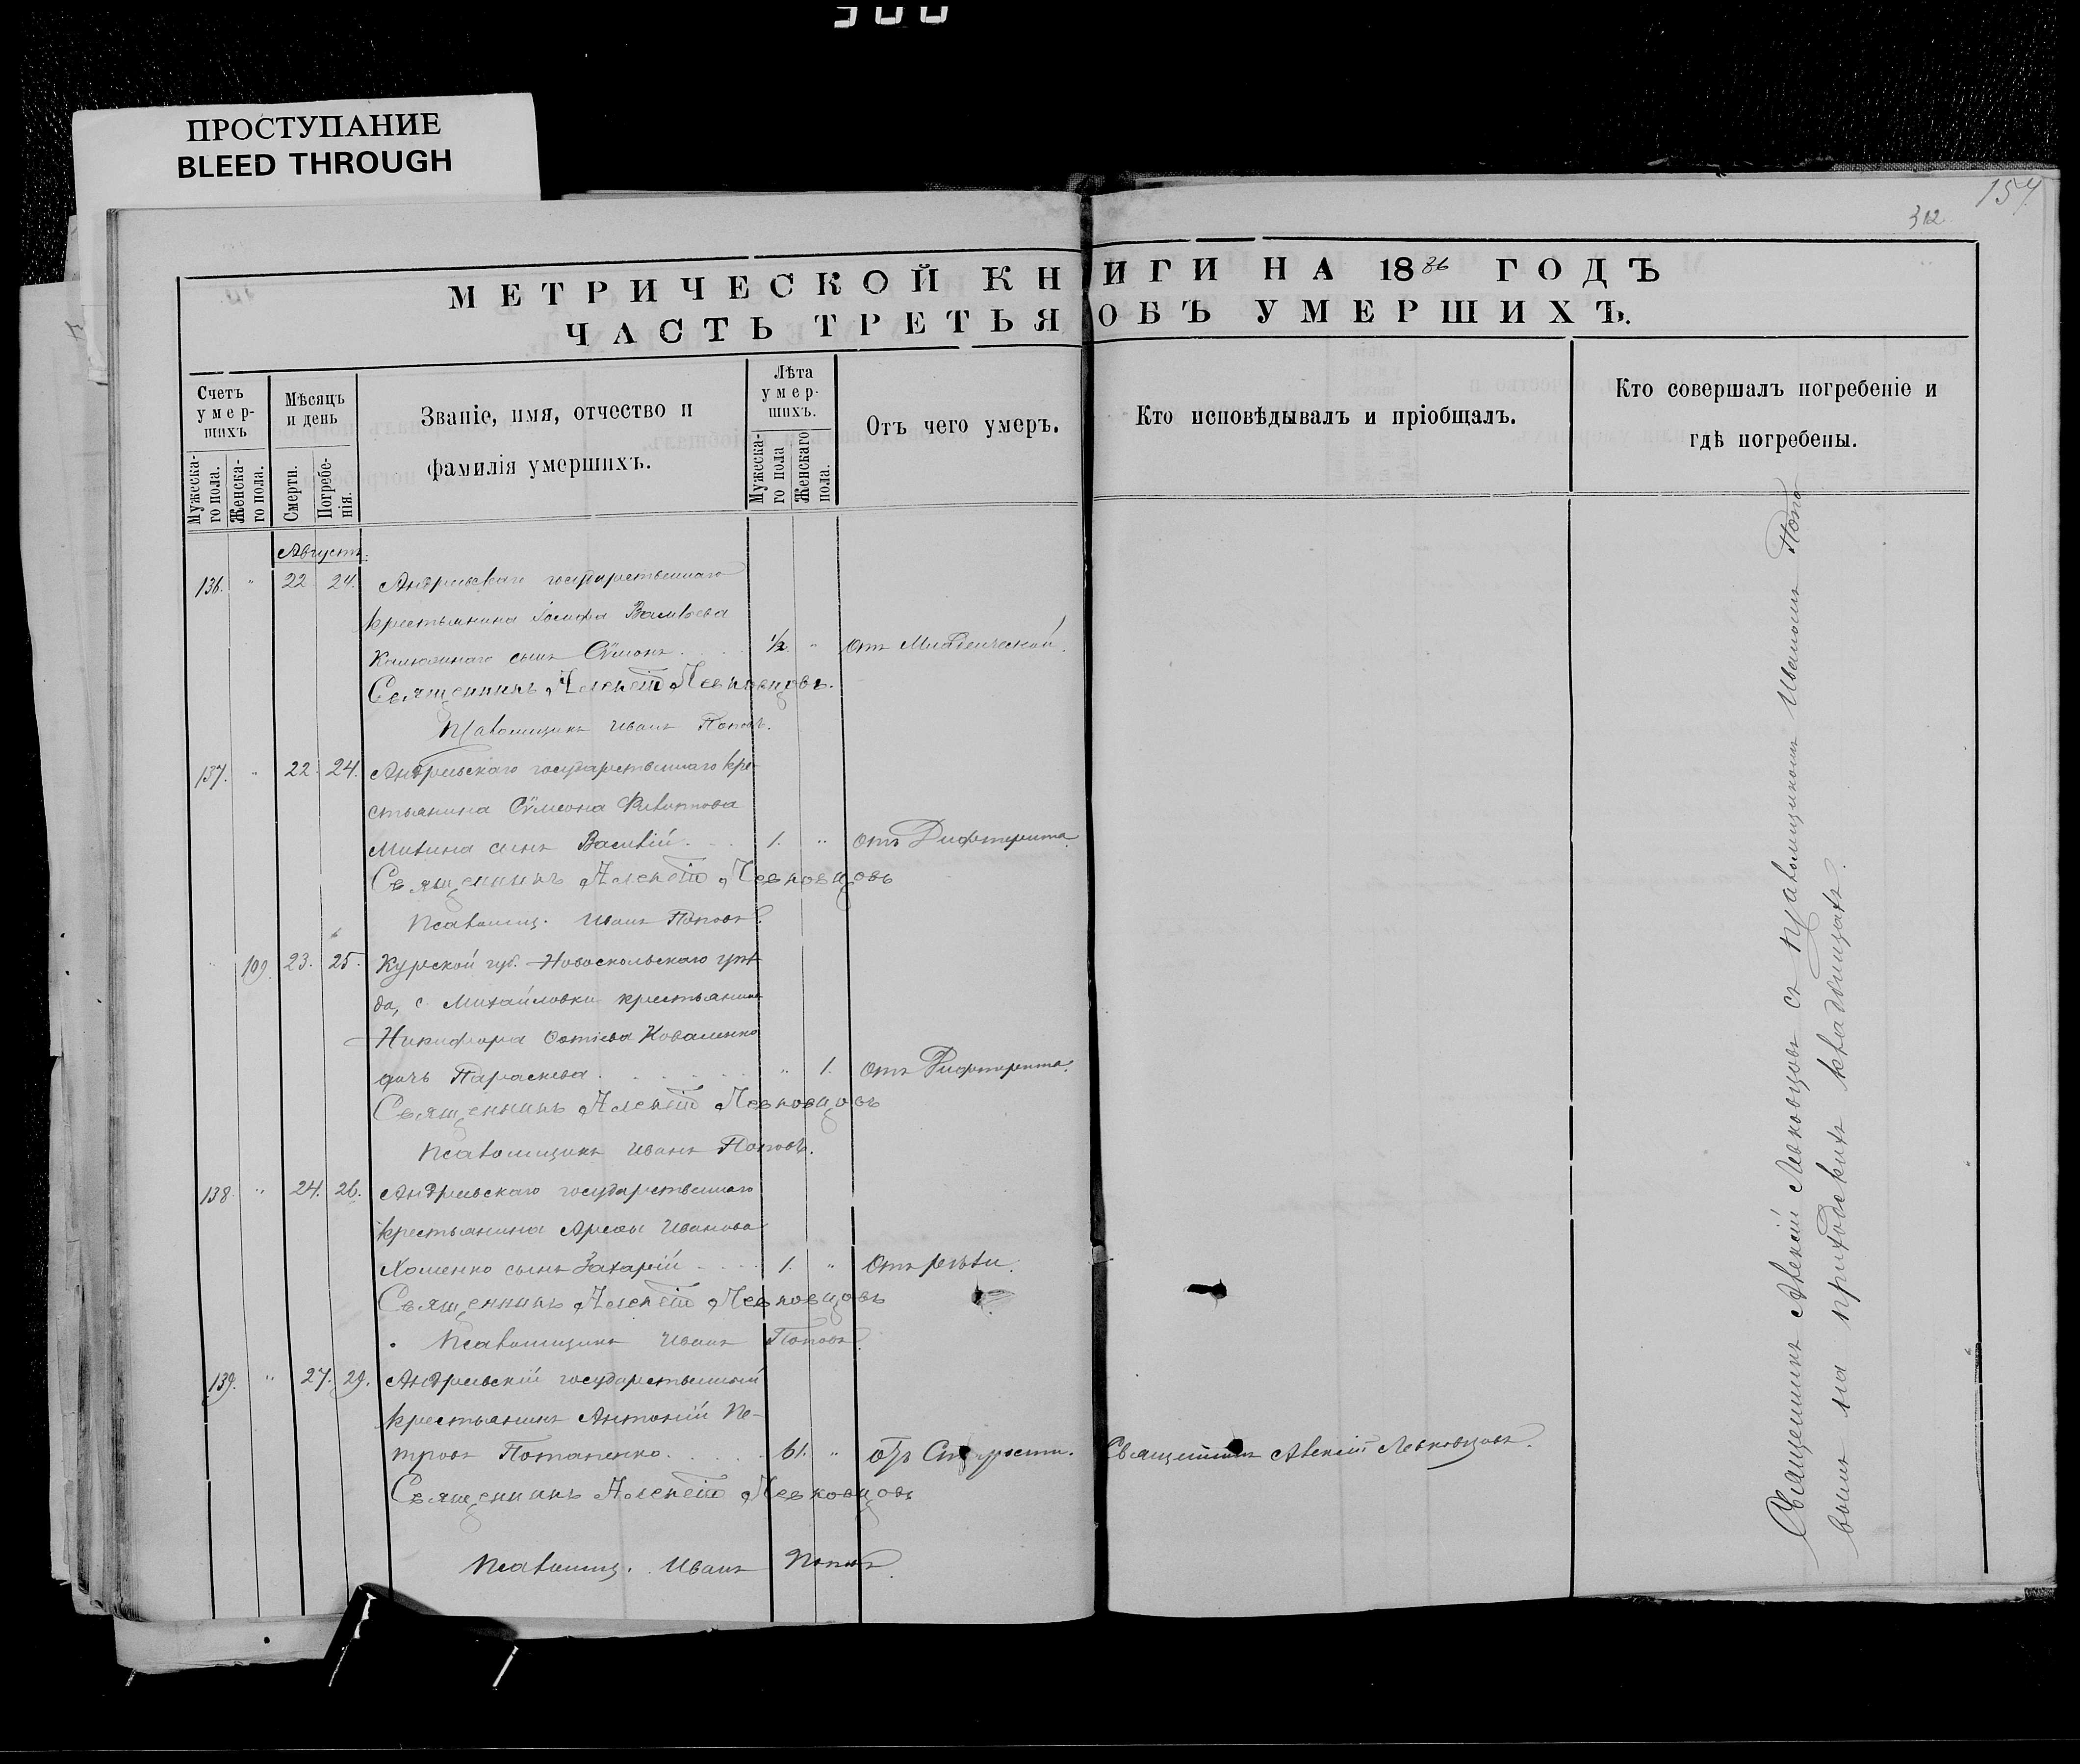 ПРОСТУПАНИЕ
BLEED THROUGH
154
312
МЕТРИЧЕСКОЙ КНИГИ НА 1886 ГОДЪ
ЧАСТЬ ТРЕТЬЯ ОБЪ УМЕРШИХЪ.
Счетъ умер-шихъ
Мужеска-го пола.
Женска-го пола.
Мѣсяцъ и день
Смерти.
Погребе-нія.
Званіе, имя, отчество и
фамилія умершихъ.
Лѣта умер-шихъ.
Мужеска-го пола
Женскаго пола.
Отъ чего умеръ.
Кто исповѣдывалъ и пріобщалъ.
Кто совершалъ погребеніе и
гдѣ погребены.
Августъ.
136. " 22 24. Андреевскаго государственнаго
крестьянина Іосифа
сынъ Сѵмеонъ . . . ½ " отъ Младенческой.
Священникъ Алексѣй Левковцовъ.
Псаломщикъ Иванъ Поповъ.
137. " 22. 24. Андреевскаго государственнаго кре-
стьянина Сѵмеона
сынъ Василій . . . 1. " отъ Дифтерита.
Священникъ Алексѣй Левковцовъ
Псаломщ. Иванъ Поповъ.
109. 23. 25. Курской губ. Новооскольскаго уѣз-
да, с. Михайловки крестьянина
Никифора Коваленко
дочь Параскева . . . " 1. отъ Дифтерита.
Священникъ Алексѣй Левковцовъ
Псаломщикъ Иванъ Поповъ.
138. " 24. 26. Андреевскаго государственнаго
крестьянина Иванова
Хоменко сынъ Захарій . . . 1. "
Священникъ Алексѣй Левковцовъ
Псаломщикъ Иванъ Поповъ.
139. " 27. 29. Андреевскій государственный
крестьянинъ Антоній Пе-
тровъ Потапенко . . . 61. " отъ Старости. Священникъ Алексѣй Левковцовъ.
Священникъ Алексѣй Левковцовъ
Псаломщ. Иванъ Поповъ.
Священникъ Алексѣй Левковцовъ съ псаломщикомъ Иваномъ Попо
вымъ на приходскихъ кладбищахъ.